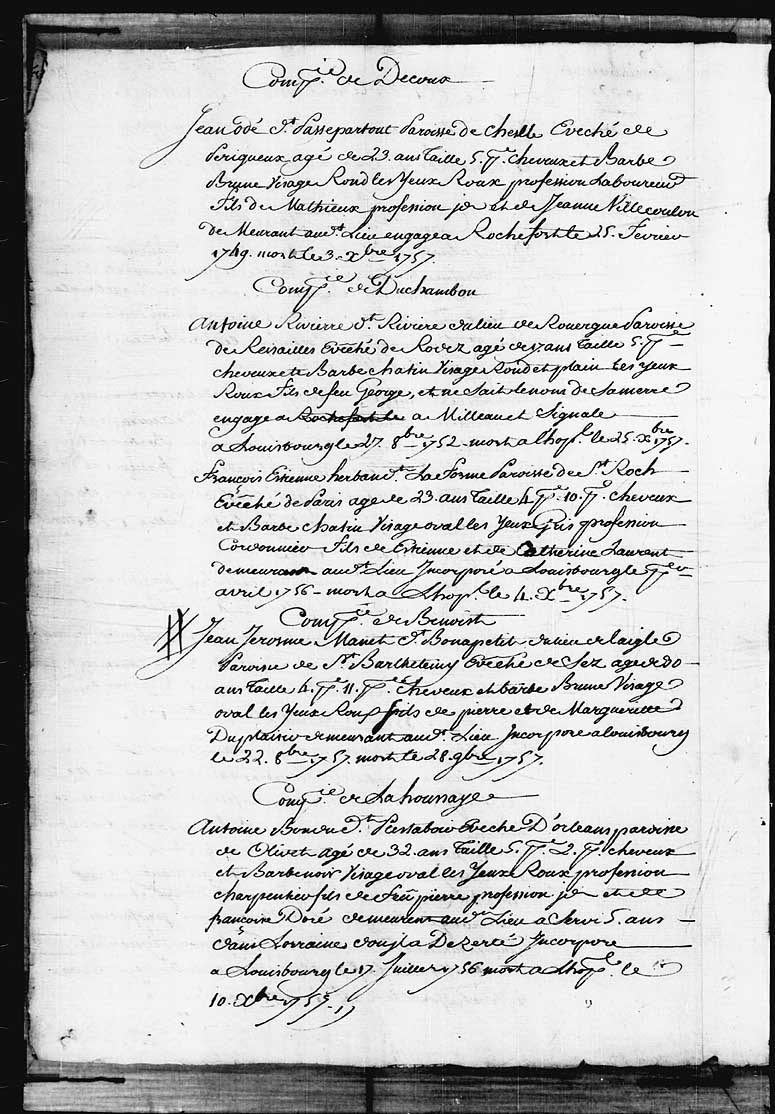 Comp.ie de Decoux
Jean odé d.t Passepartout Paroisse de Chesle Eveché de
Perigueux agé de 23. ans Taille 5. p.s Cheveux et Barbe
Brune Visage Rond les Yeux Roux profession Laboureur
fils de Mathieux profession id.m et de Jeanne Villecoulon
de Meurant aud.t Lieu engage a Rochefort le 25. Fevrier
1749. mort le 3. Xbre 1757.
Comp.ie de Duchambou
Antoine Rivierre d.t Riviere du lieu de Rouergue Paroisse
de Eveché de Rodez agé de ans Taille 5. p.s
cheveux et Barbe chatin Visage Rond et plain les yeux
Roux fils de feu George, et ne sait le nom de sa merre
engage a Rochefort le a Milleau et Signale
a Louisbourg le 27. 8bre 1752. mort a lhop.l le 25. Xbre 1757.
François Etienne herban d.t La Forme Paroisse de S.t Roch
Eveché de Paris age de 23. ans Taille 4. p.s 10. p.s cheveux
et Barbe chatin Visage oval les Yeux Gris profession
Cordonnier fils de Etienne et de Catherine Laurent
demeurant aud.t Lieu Incorporé a Louisbourg le p.er
avril 1756 mort a Lhop.l le 4. Xbre 1757.
Comp.ie de Benoist
Jean Jerosme Manet d.t Bonapetit du lieu de laigle
Paroisse de S.t Barthelemy Eveché de Sez age de
ans Taille 4. p.s 11. p.s Cheveux et barbe Brune Visage
oval les Yeux Roux fils de pierre et de Margueritte
Duplaisir demeurant aud.t Lieu Incorpore a louisbourg
le 22. 8bre 1757. mort le 28. 9bre 1757.
Comp.ie de Lahoussaye
Antoine d.t Eveché D'orleans paroisse
de Olivet agé de 32. ans Taille 5. p.s 2. p.s cheveux
et Barbe noir Visage oval les Yeux Roux profession
charpentier fils de feu pierre profession id.m et de
francoise Doré demeurent aud.t Lieu a Servi 5. ans
dans Lorraine doujla Dezerté Incorpore
a Louisbourg le 17. Juillet 1756 mort a Lhop.l le
10. Xbre 1757.